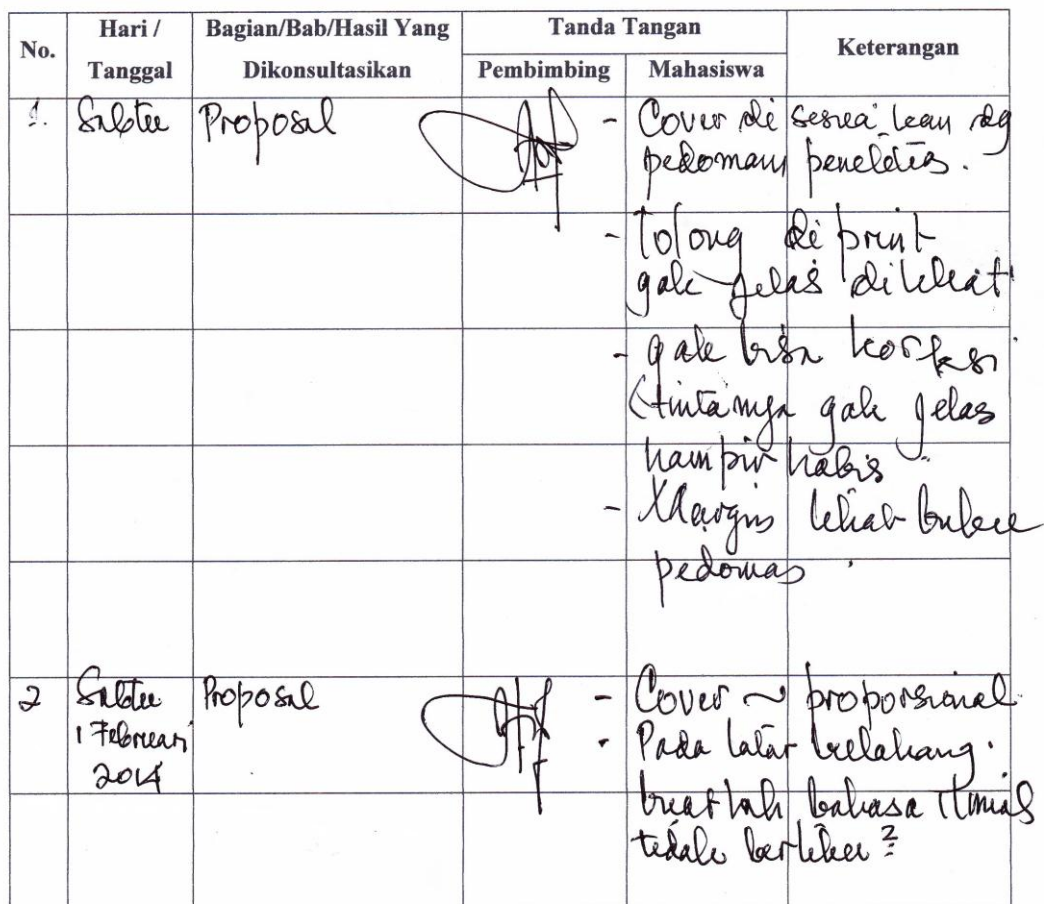 No. Hari / Tanggal Bagian/Bab/Hasil Yang Dikonsultasikan Tanda Tangan Keterangan
Pembimbing Mahasiswa
1. Sabtu Proposal - Cover di sesuaikan dg
pedoman penelitian.
- tolong di print
gak jelas dilihat
- gak bisa koreksi
(tintanya gak jelas
hampir habis
- Margin lihat buku
pedoman.
2 Sabtu Proposal - Cover ~ proporsional
1 Februari - Pada latar belakang.
2014 buatlah bahasa ilmiah
tidak